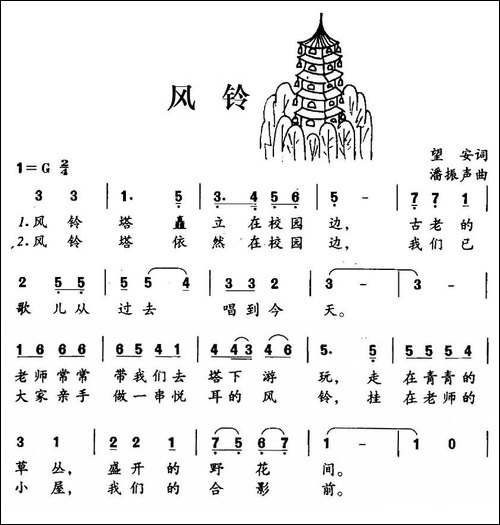 风铃
望安词
1=G 2/4 潘振声曲
3 3 | 1. 5 | 3. 4 5 6 | 5 - | 7 7 1 |
1.风 铃 塔 矗 立 在 校 园 边, 古 老 的
2.风 铃 塔 依 然 在 校 园 边, 我 们 已
2 5 5 | 5 5 4 | 3 3 2 | 3 - | 3 - |
歌 儿 从 过 去 唱 到 今 天。
1 6 6 6 | 6 5 4 1 | 4 4 3 4 6 | 5. 5 | 5 5 5 5 |
老 师 常 常 带 我 们 去 塔 下 游 玩, 走 在 青 青 的
大 家 亲 手 做 一 串 悦 耳 的 风 铃, 挂 在 老 师 的
3 1 | 2 2 1 | 7 5 6 7 | 1 - | 1 0
草 丛, 盛 开 的 野 花 间。
小 屋, 我 们 的 合 影 前。